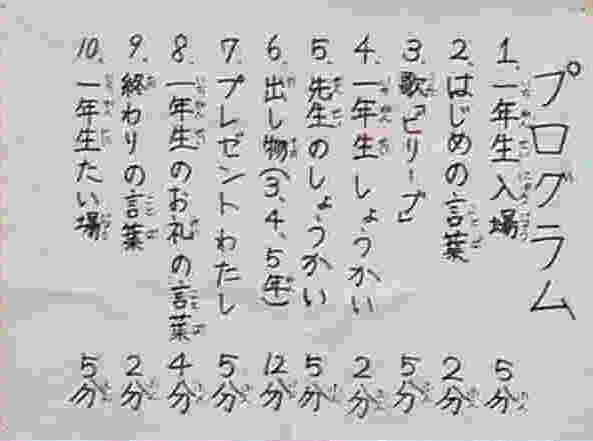 プログラム
1、一年生入場 5分
2、はじめの言葉 2分
3、歌『ビリーブ』 5分
4、一年生しょうかい 2分
5、先生のしょうかい 5分
6、出し物(3、4、5年) 12分
7、プレゼントわたし 5分
8、一年生のお礼の言葉 4分
9、終わりの言葉 2分
10、一年生たい場 5分